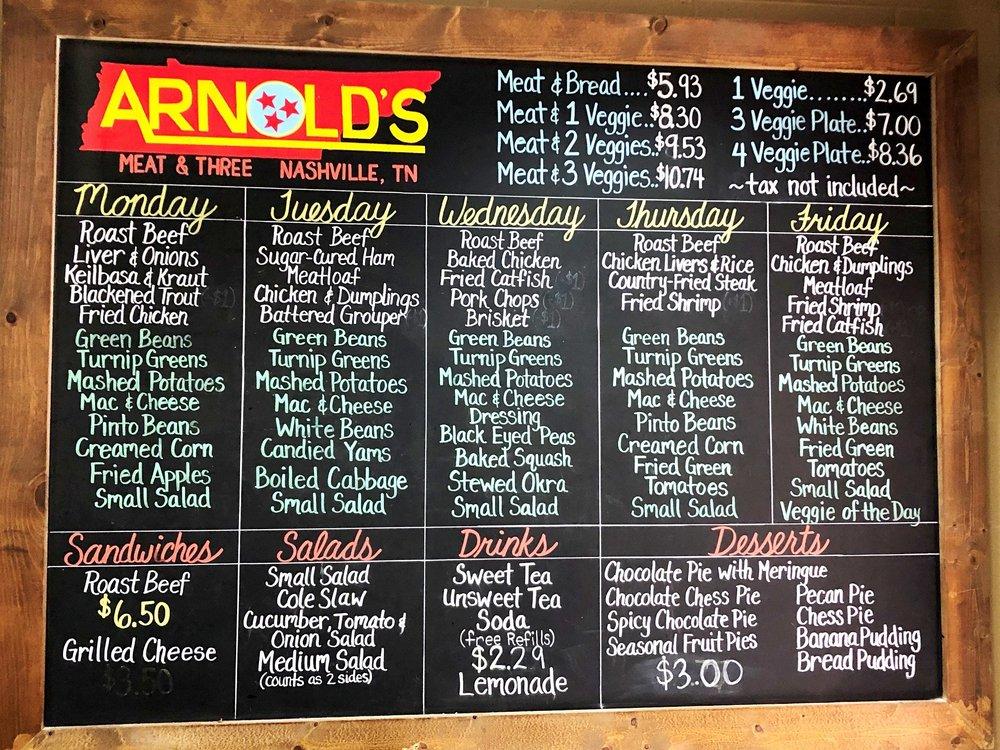 ARNOLD'S
MEAT & THREE NASHVILLE, TN
Meat & Bread....$5.93
Meat & 1 Veggie..$8.30
Meat & 2 Veggies..$9.53
Meat & 3 Veggies..$10.74
1 Veggie........$2.69
3 Veggie Plate..$7.00
4 Veggie Plate..$8.36
~tax not included~
Monday
Roast Beef
Liver & Onions
Keilbasa & Kraut
Blackened Trout ($1)
Fried Chicken
Green Beans
Turnip Greens
Mashed Potatoes
Mac & Cheese
Pinto Beans
Creamed Corn
Fried Apples
Small Salad
Tuesday
Roast Beef
Sugar-Cured Ham
Meatloaf
Chicken & Dumplings
Battered Grouper
Green Beans
Turnip Greens
Mashed Potatoes
Mac & Cheese
White Beans
Candied Yams
Boiled Cabbage
Small Salad
Wednesday
Roast Beef
Baked Chicken
Fried Catfish ($1)
Pork Chops ($1)
Brisket ($1)
Green Beans
Turnip Greens
Mashed Potatoes
Mac & Cheese
Dressing
Black Eyed Peas
Baked Squash
Stewed Okra
Small Salad
Thursday
Roast Beef
Chicken Livers & Rice
Country-Fried Steak
Fried Shrimp ($1)
Green Beans
Turnip Greens
Mashed Potatoes
Mac & Cheese
Pinto Beans
Creamed Corn
Fried Green
Tomatoes
Small Salad
Friday
Roast Beef
Chicken & Dumplings
Meatloaf
Fried Shrimp
Fried Catfish
Green Beans
Turnip Greens
Mashed Potatoes
Mac & Cheese
White Beans
Fried Green
Tomatoes
Small Salad
Veggie of the Day
Sandwiches
Roast Beef
$6.50
Grilled Cheese
$3.50
Salads
Small Salad
Cole Slaw
Cucumber, Tomato &
Onion Salad
Medium Salad
(counts as 2 sides)
Drinks
Sweet Tea
Unsweet Tea
Soda
(free Refills)
$2.29
Lemonade
Desserts
Chocolate Pie with Meringue
Chocolate Chess Pie
Spicy Chocolate Pie
Seasonal Fruit Pies
$3.00
Pecan Pie
Chess Pie
Banana Pudding
Bread Pudding